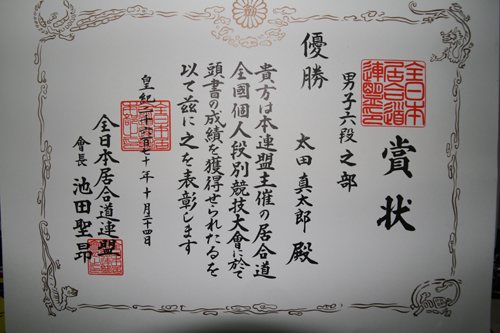 賞状
全日本
居合道
連盟印
男子六段之部
優勝
太田真太郎殿
貴方は本連盟主催の居合道
全國個人段別競技大會に於て
頭書の成績を獲得せられたるを
以て茲に之を表彰します
皇紀二千六百七十年十月二十四日
全日本居合道連盟
會長 池田聖昂